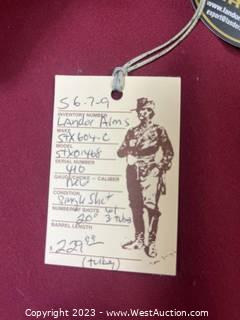 www.landor
expert@landor
S 6-7-9
INVENTORY NUMBER
Landor Arms
MAKE
STX604-C
MODEL
STX01468
SERIAL NUMBER
410
GAUGE/CHOKE - CALIBER
CONDITION
Single Shot
NUMBER OF SHOTS
20" 3 tubes
BARREL LENGTH
$ 229.99
(turkey)
Copyright © 2023 - www.WestAuction.com